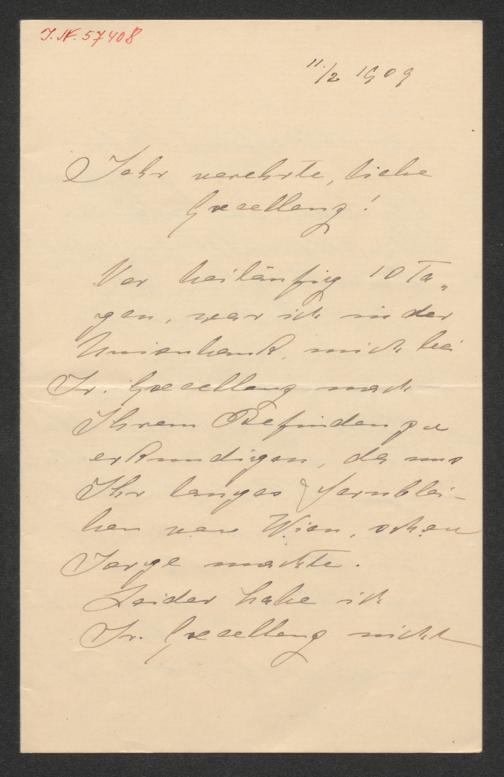 J.N. 57408
11./2 1909
Sehr verehrte, liebe
Excellenz!
Vor beiläufig 10 Ta„
gen, war ich in der
Unionbank, mich bei
Sr. Excellenz nach
Ihrem Befinden zu
erkundigen, da uns
Ihr langes Fernblei-
ben von Wien, schon
Sorge machte.
Leider habe ich
Sr. Excellenz nicht